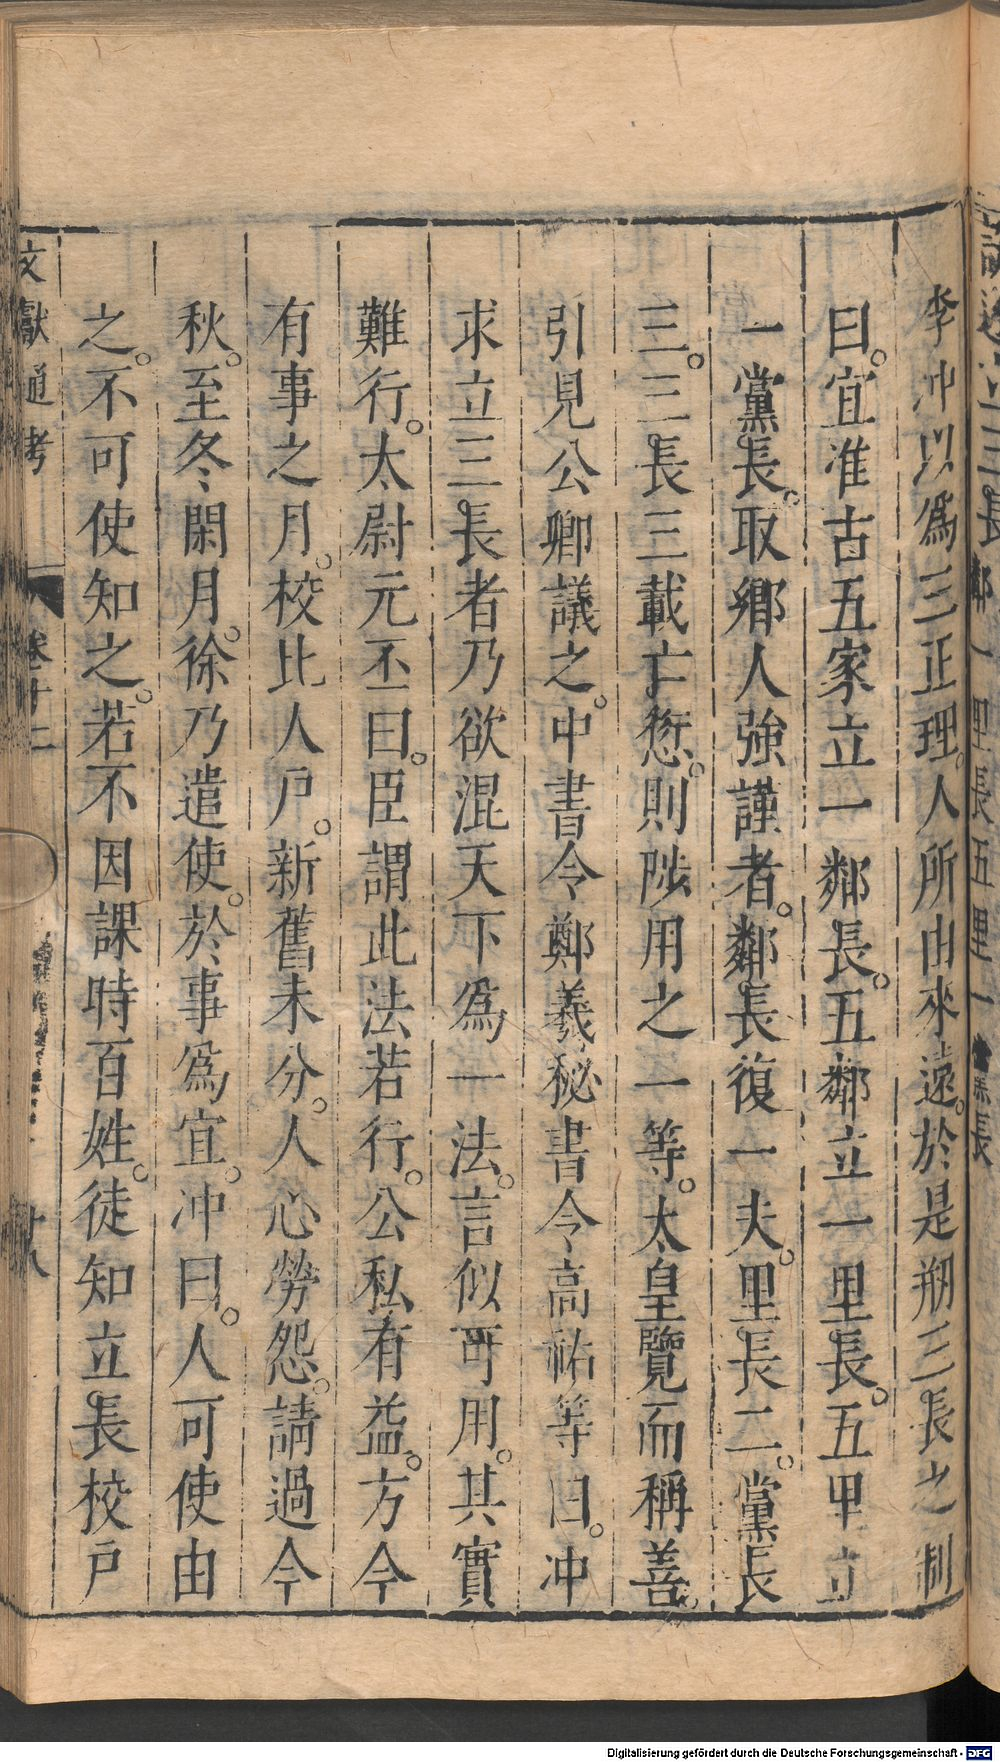 李冲以爲三正理人所由來遠。於是刱三長之制
曰。宜准古五家立一鄰長。五鄰立一里長。五里立
一黨長。取鄉人強謹者。鄰長復一夫。里長二。黨長
三。三長三載亡愆。則陟用之一等。太皇覽而稱善。
引見公卿議之。中書令鄭羲秘書令高祐等曰。冲
求立三長者乃欲混天下爲一法。言似可用。其實
難行。太尉元丕曰。臣謂此法若行。公私有益。方今
有事之月。校比人戶。新舊未分。人心勞怨。請過今
秋。至冬閑月。徐乃遣使。於事爲宜。冲曰。人可使由
之。不可使知之。若不因課時百姓。徒知立長校戶
文獻通考
卷十二
十八
Digitalisierung gefördert durch die Deutsche Forschungsgemeinschaft - DFG